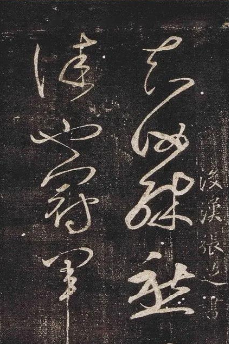 後漢張芝書
知汝殊愁
佳也冠軍